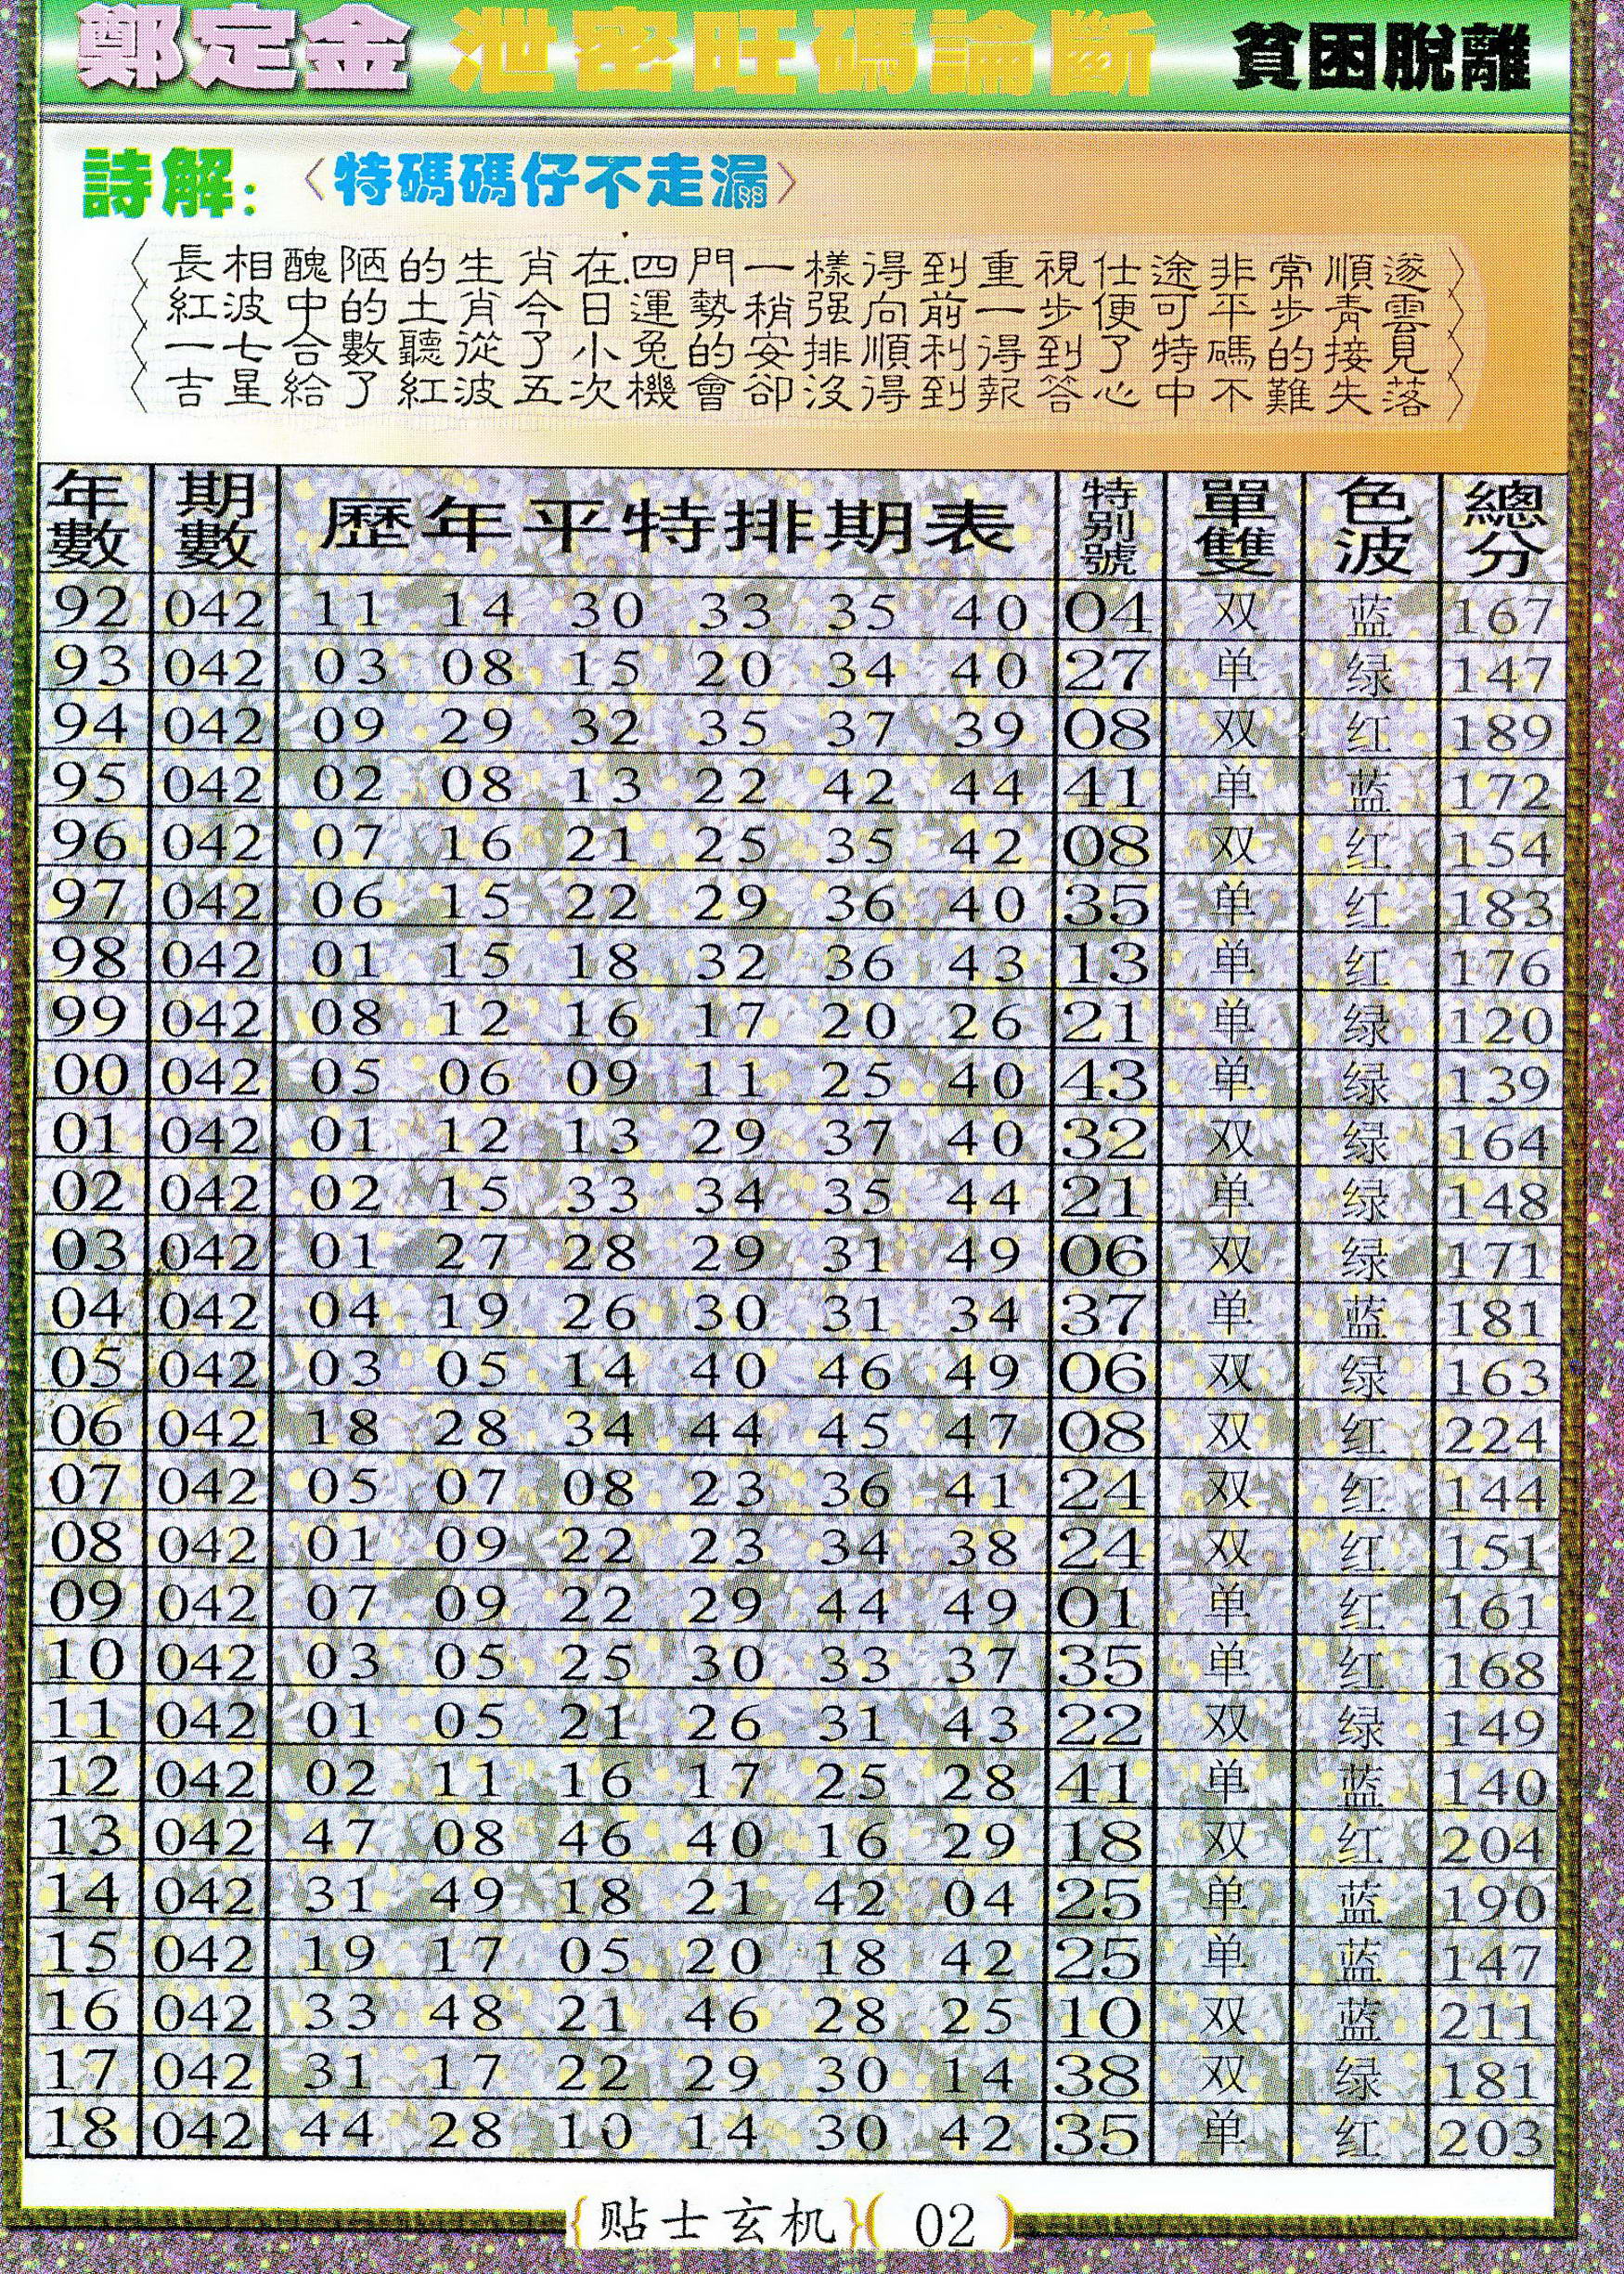 鄭定金 泄密旺碼論斷 貧困脫離
詩解：〈特碼碼仔不走漏〉
〈長相醜陋的生肖在四門一樣得到重視仕途非常順遂〉
〈紅波中的土肖今日運勢稍强向前一步便可平步青雲〉
〈一七合數聽從了小兔的安排順利得到了特碼的接見〉
〈吉星給了紅波五次機會卻沒得到報答心中不難失落〉
年數 期數 歷年平特排期表 特别號 單雙 色波 總分
92 042 11 14 30 33 35 40 04 双 蓝 167
93 042 03 08 15 20 34 40 27 单 绿 147
94 042 09 29 32 35 37 39 08 双 红 189
95 042 02 08 13 22 42 44 41 单 蓝 172
96 042 07 16 21 25 35 42 08 双 红 154
97 042 06 15 22 29 36 40 35 单 红 183
98 042 01 15 18 32 36 43 13 单 红 176
99 042 08 12 16 17 20 26 21 单 绿 120
00 042 05 06 09 11 25 40 43 单 绿 139
01 042 01 12 13 29 37 40 32 双 绿 164
02 042 02 15 33 34 35 44 21 单 绿 148
03 042 01 27 28 29 31 49 06 双 绿 171
04 042 04 19 26 30 31 34 37 单 蓝 181
05 042 03 05 14 40 46 49 06 双 绿 163
06 042 18 28 34 44 45 47 08 双 红 224
07 042 05 07 08 23 36 41 24 双 红 144
08 042 01 09 22 23 34 38 24 双 红 151
09 042 07 09 22 29 44 49 01 单 红 161
10 042 03 05 25 30 33 37 35 单 红 168
11 042 01 05 21 26 31 43 22 双 绿 149
12 042 02 11 16 17 25 28 41 单 蓝 140
13 042 47 08 46 40 16 29 18 双 红 204
14 042 31 49 18 21 42 04 25 单 蓝 190
15 042 19 17 05 20 18 42 25 单 蓝 147
16 042 33 48 21 46 28 25 10 双 蓝 211
17 042 31 17 22 29 30 14 38 双 绿 181
18 042 44 28 10 14 30 42 35 单 红 203
{贴士玄机}( 02 )